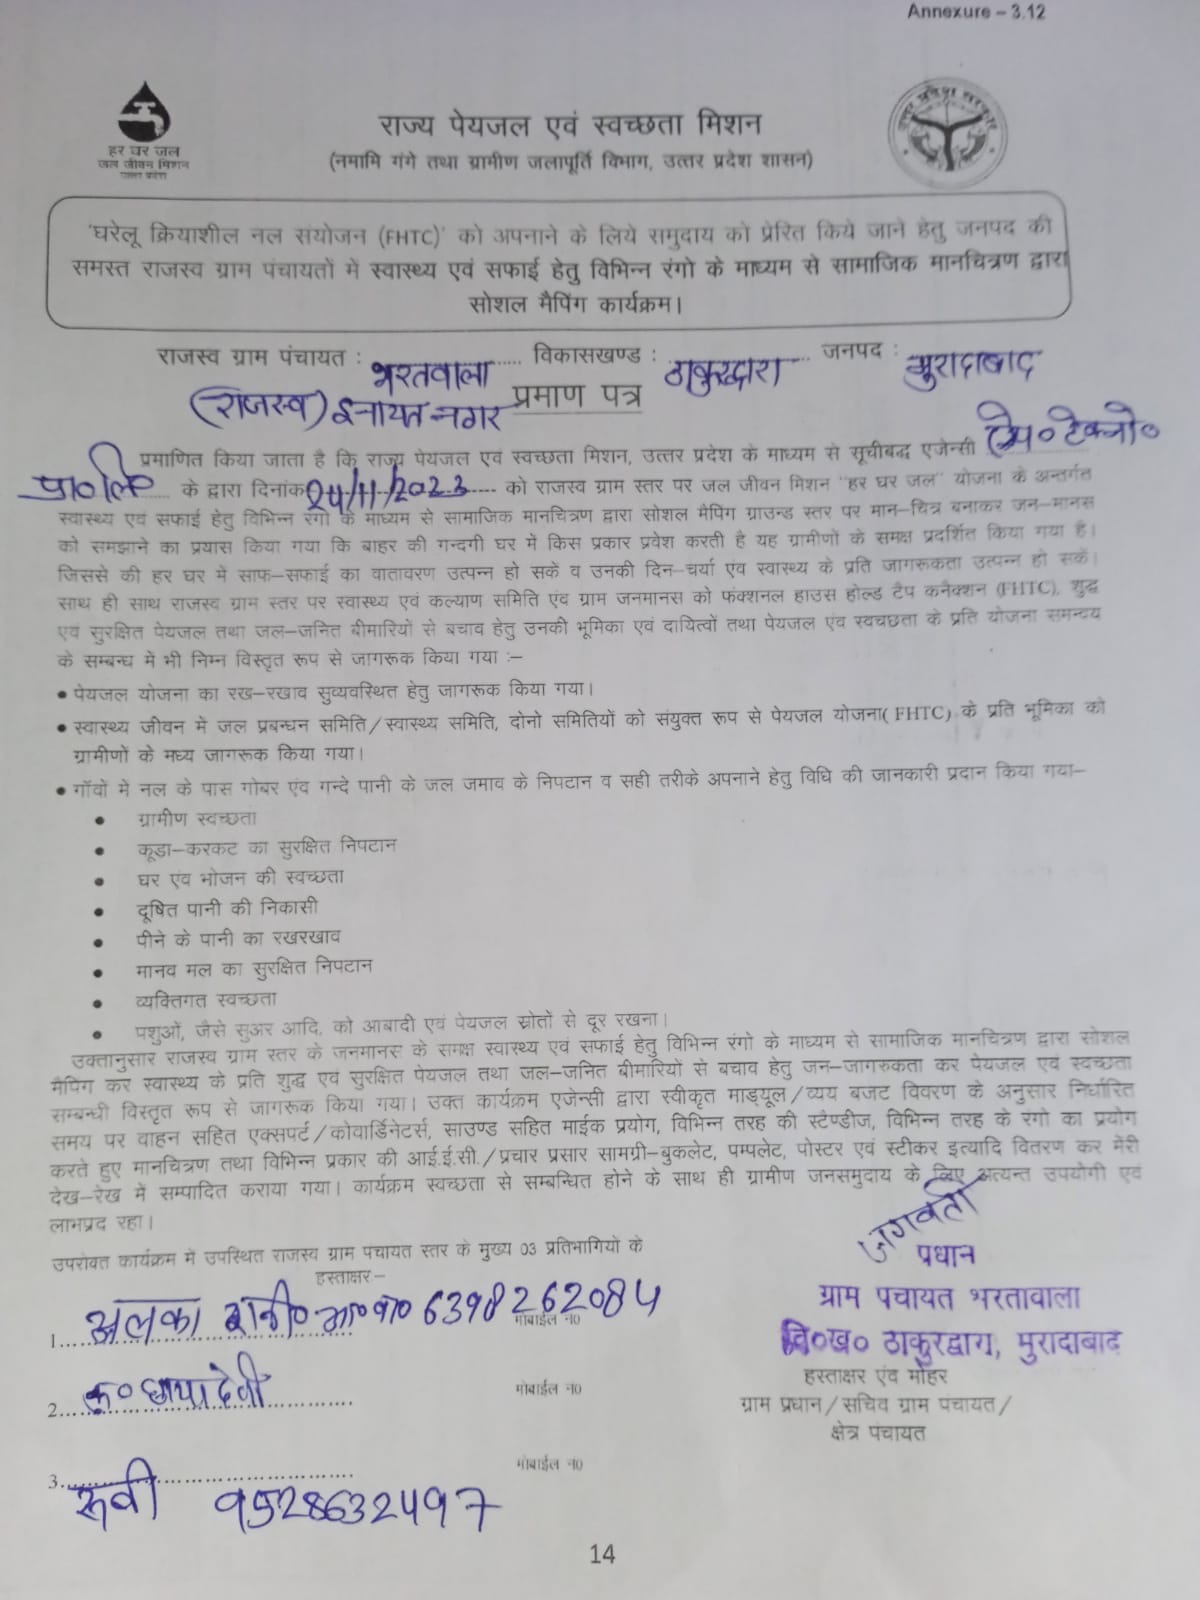 Annexure – 3.12
हर घर जल
जल जीवन मिशन
उत्तर प्रदेश
उत्तर प्रदेश सरकार
राज्य पेयजल एवं स्वच्छता मिशन
(नमामि गंगे तथा ग्रामीण जलापूर्ति विभाग, उत्तर प्रदेश शासन)
'घरेलू क्रियाशील नल संयोजन (FHTC)' को अपनाने के लिये समुदाय को प्रेरित किये जाने हेतु जनपद की
समस्त राजस्व ग्राम पंचायतों में स्वास्थ्य एवं सफाई हेतु विभिन्न रंगो के माध्यम से सामाजिक मानचित्रण द्वारा
सोशल मैपिंग कार्यक्रम।
राजस्व ग्राम पंचायत : भरतवाला विकासखण्ड : ठाकुरद्वारा जनपद : मुरादाबाद
(राजस्व) इनायत नगर प्रमाण पत्र
प्रमाणित किया जाता है कि राज्य पेयजल एवं स्वच्छता मिशन, उत्तर प्रदेश के माध्यम से सूचीबद्ध एजेन्सी टेक्नो०
प्रा०लि० के द्वारा दिनांक 24/11/2023 को राजस्व ग्राम स्तर पर जल जीवन मिशन "हर घर जल" योजना के अन्तर्गत
स्वास्थ्य एवं सफाई हेतु विभिन्न रंगो के माध्यम से सामाजिक मानचित्रण द्वारा सोशल मैपिंग ग्राउन्ड स्तर पर मान–चित्र बनाकर जन–मानस
को समझाने का प्रयास किया गया कि बाहर की गन्दगी घर में किस प्रकार प्रवेश करती है यह ग्रामीणों के समक्ष प्रदर्शित किया गया है।
जिससे की हर घर में साफ–सफाई का वातावरण उत्पन्न हो सकें व उनकी दिन–चर्या एंव स्वास्थ्य के प्रति जागरूकता उत्पन्न हो सकें।
साथ ही साथ राजस्व ग्राम स्तर पर स्वास्थ्य एवं कल्याण समिति एंव ग्राम जनमानस को फंक्शनल हाउस होल्ड टैप कनैक्शन (FHTC), शुद्ध
एवं सुरक्षित पेयजल तथा जल–जनित बीमारियों से बचाव हेतु उनकी भूमिका एवं दायित्वों तथा पेयजल एंव स्वचछता के प्रति योजना समन्वय
के सम्बन्ध में भी निम्न विस्तृत रूप से जागरूक किया गया :–
• पेयजल योजना का रख–रखाव सुव्यवस्थित हेतु जागरूक किया गया।
• स्वास्थ्य जीवन मे जल प्रबन्धन समिति/स्वास्थ्य समिति, दोनो समितियों को संयुक्त रूप से पेयजल योजना( FHTC) के प्रति भूमिका को
ग्रामीणों के मध्य जागरूक किया गया।
• गॉवों में नल के पास गोबर एंव गन्दे पानी के जल जमाव के निपटान व सही तरीके अपनाने हेतु विधि की जानकारी प्रदान किया गया–
• ग्रामीण स्वच्छता
• कूडा–करकट का सुरक्षित निपटान
• घर एंव भोजन की स्वच्छता
• दूषित पानी की निकासी
• पीने के पानी का रखरखाव
• मानव मल का सुरक्षित निपटान
• व्यक्तिगत स्वच्छता
• पशुओं, जैसे सुअर आदि, को आबादी एवं पेयजल स्रोतों से दूर रखना।
उक्तानुसार राजस्व ग्राम स्तर के जनमानस के समक्ष स्वास्थ्य एवं सफाई हेतु विभिन्न रंगो के माध्यम से सामाजिक मानचित्रण द्वारा सोशल
मैपिंग कर स्वास्थ्य के प्रति शुद्ध एवं सुरक्षित पेयजल तथा जल–जनित बीमारियों से बचाव हेतु जन–जागरुकता कर पेयजल एवं स्वच्छता
सम्बन्धी विस्तृत रूप से जागरूक किया गया। उक्त कार्यक्रम एजेन्सी द्वारा स्वीकृत माड्यूल/व्यय बजट विवरण के अनुसार निर्धारित
समय पर वाहन सहित एक्सपर्ट/कोवार्डिनेटर्स, साउण्ड सहित माईक प्रयोग, विभिन्न तरह की स्टैण्डीज, विभिन्न तरह के रंगो का प्रयोग
करते हुए मानचित्रण तथा विभिन्न प्रकार की आई.ई.सी./प्रचार प्रसार सामग्री–बुकलेट, पम्पलेट, पोस्टर एवं स्टीकर इत्यादि वितरण कर मेरी
देख–रेख में सम्पादित कराया गया। कार्यक्रम स्वच्छता से सम्बन्धित होने के साथ ही ग्रामीण जनसमुदाय के लिए अत्यन्त उपयोगी एवं
लाभप्रद रहा।
जगवती
प्रधान
ग्राम पंचायत भरतावाला
वि०ख० ठाकुरद्वारा, मुरादाबाद
हस्ताक्षर एंव मोहर
ग्राम प्रधान/सचिव ग्राम पंचायत/
क्षेत्र पंचायत
उपरोक्त कार्यक्रम मे उपस्थित राजस्व ग्राम पंचायत स्तर के मुख्य 03 प्रतिभागियो के
हस्ताक्षर–
1. अलका रानी० मोबाईल न0 6398262084
2. क० छाया देवी मोबाईल न0
3. रूवी मोबाईल न0
9528632497
14